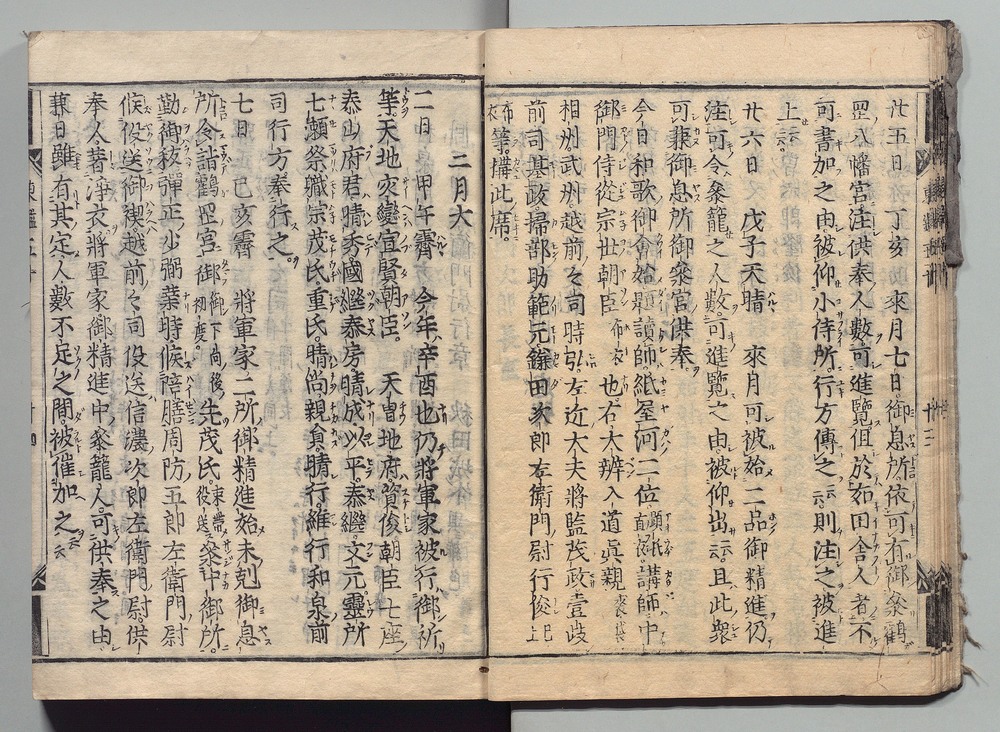 廿五日 丁亥 來月七日御息所依可有御參鶴
罡八幡宮注供奉人數可進覽但於如田舎人者不
可書加之由被仰小侍所行方傳之云云則注之被進
上云云
廿六日 戊子天晴 來月可被始二品御精進仍
注可令參籠之人數可進覽之由被仰出云云且此衆
可兼御息所御參宮供奉
今日和歌御會始題讀師紙屋河二位顯氏講師中
御門侍從宗世朝臣布衣也右大辨入道眞親
相州武州越前々司時弘左近大夫將監茂政壹岐
前司基政掃部助範元鎌田次郎左衛門尉行俊已上
布衣等構此席
二月大
二日 甲午霽 今年辛酉也仍將軍家被行御祈
等天地灾變宜賢朝臣 天曺地府資俊朝臣七座
泰山府君晴秀國継泰房晴成以平泰繼文元靈所
七瀬祭職宗茂氏重氏晴尚親貞晴行維行和泉前
司行方奉行之
七日 己亥霽 將軍家二所御精進始未剋御息
所令詣鶴罡宮御初度御下向後先茂氏束帶役送參中御所
勤御祓彈正少弼業時候陪膳周防五郎左衛門尉
候役送御禊越前々司役送信濃次郎左衛門尉供
奉人著淨衣將軍家御精進中參籠人可供奉之由
兼日雖有其定人數不定之間被催加之云云
東鑑五十
廿四